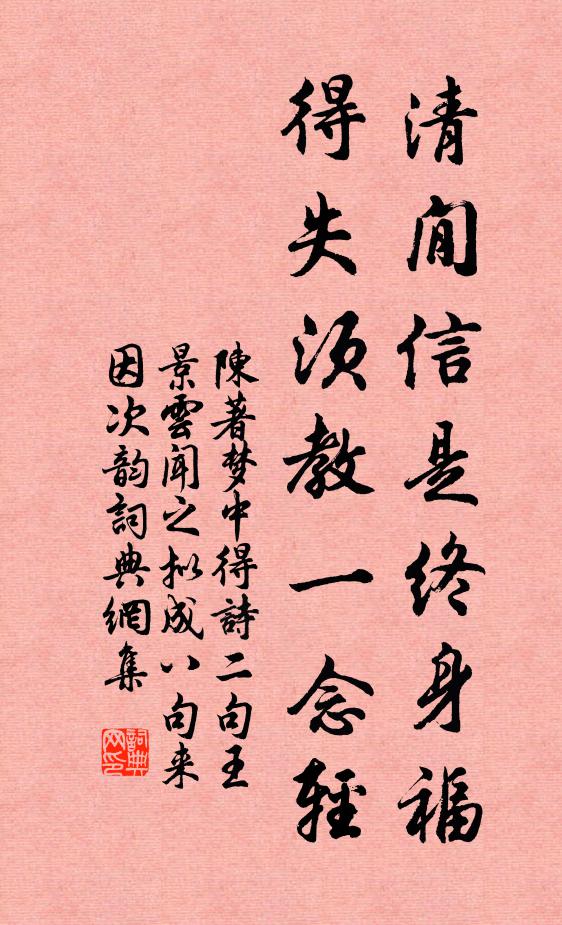 清閒信是終身福
得失須教一念輕
陳著梦中得詩二句王
景雲聞之拟成八句来
因次韵詞典網集
詞典网印